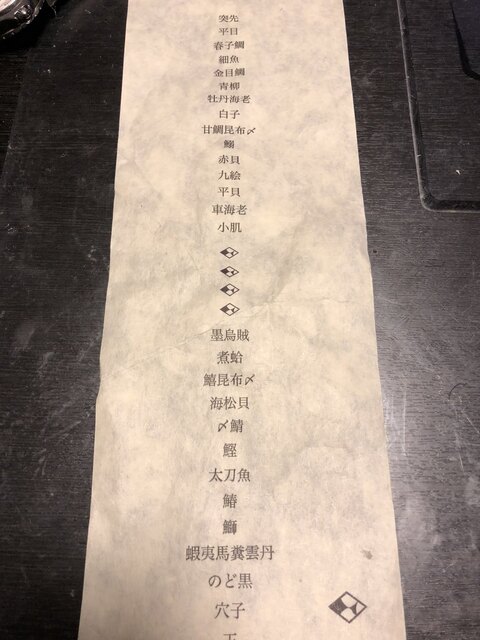 突先
平目
春子鯛
細魚
金目鯛
青柳
牡丹海老
白子
甘鯛昆布〆
鰯
赤貝
九絵
平貝
車海老
小肌
墨烏賊
煮蛤
鱚昆布〆
海松貝
〆鯖
鰹
太刀魚
鰆
鰤
蝦夷馬糞雲丹
のど黒
穴子